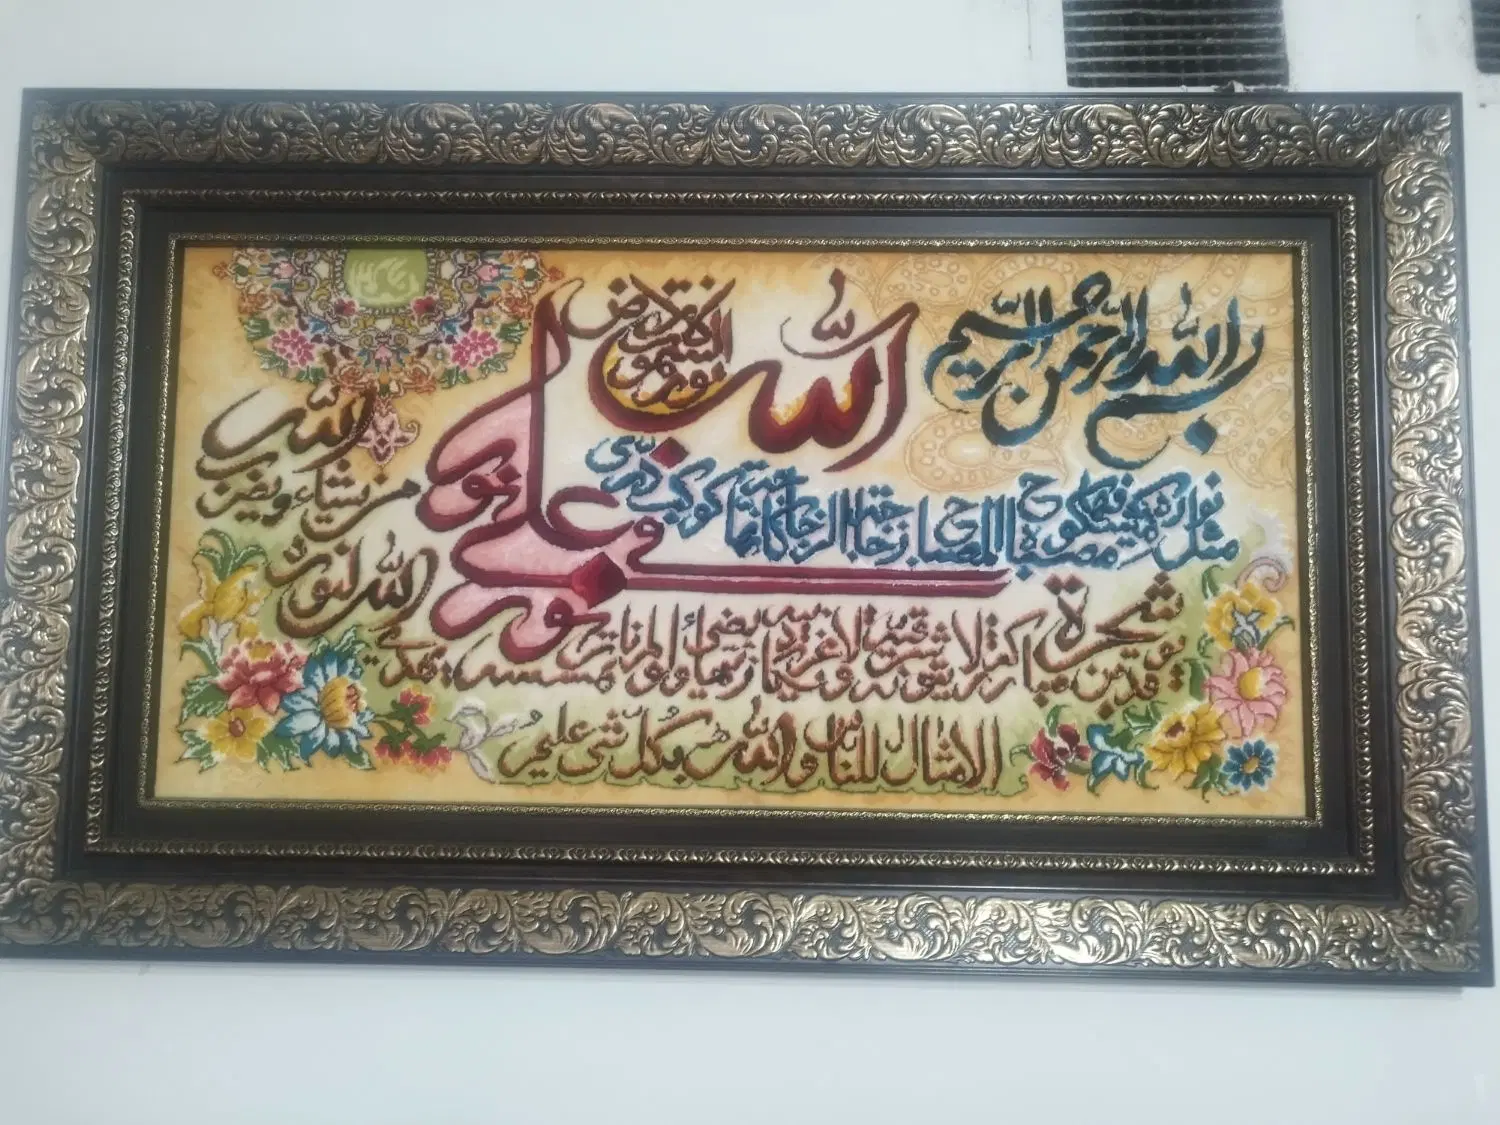 بسم الله الرحمن الرحیم
الله نور السموات و الارض
مثل نوره کمشکوة فیها مصباح المصباح فی زجاجة الزجاجة کانها کوکب دری
یوقد من شجرة مبارکة زیتونة لا شرقیة و لا غربیة یکاد زیتها یضیء و لو لم تمسسه نار
نور علی نور
یهدی الله لنوره من یشاء و یضرب الله
الامثال للناس والله بکل شی علیم